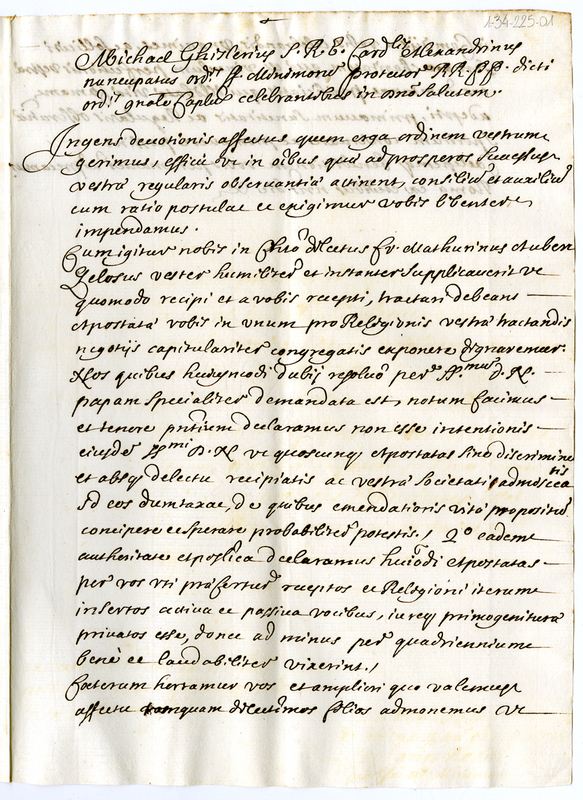 1-34-225-01
Michael Ghislerius S. R. E. Card.lis Alexandrinus
nuncupatus ord.is ff. Minimorũ Protector RR. PP. dicti
ord.is gñale Cap.lum celebrantibus in Dño Salutem.
Ingens devotionis affectus quem erga ordinem vestrum
gerimus, efficit ut in oĩbus quæ ad prosperos Successus
vestræ regularis observantiæ attinent, consiliũ et auxiliũ
cum ratio postulat et exigimur vobis libenter
impendamus.
Cum igitur nobis in Chr̃o dilectus Fr. Mathurinus Auber
Zelosus vester humiliter et instanter supplicaverit ut
quomodo recipi et a vobis recepti, tractari debeant
Apostatæ vobis in unum pro Religionis vestræ tractandis
negotijs capitulariter congregatis exponere dignaremur.
Nos quibus huiusmodi dubij resoluo per S.mus D. N.
papam specialiter demandata est, notum facimus
et tenore pñtium declaramus non esse intentionis
eiusdẽ SS.mi D. N. ut quoscunq Apostatas sine discrimine
et absq delectu recipiatis ac vestræ Societati admisceatis
Sed eos dumtaxat, de quibus emendationis vitæ propositũ
concipere et sperare probabiliter potestis. 2º eadem
authoritate Apostlica declaramus huiõdi Apostatas
per vos uti præfertur receptos et Religioni iterum
insertos activa et passiva vocibus, iureq primogenituræ
privatos esse, donec ad minus per quadriennium
benè et laudabiliter vixerint.
Cæterum hortamur vos et ampliori quo valemus
affectu tamquam dilectissimos filios admonemus ut